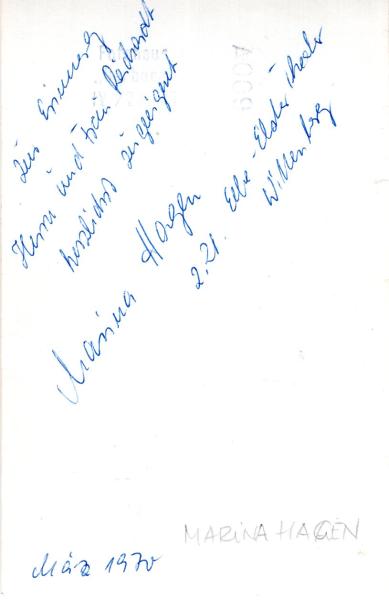 Zur Erinnerung
Herrn und Frau Reichardt
herzlichst zugeeignet
Marina Hagen
z. Zt. Elbe-Elster Theater
Wittenberg
März 1970
MARINA HAGEN
A009